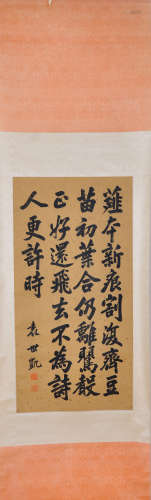 薤本新痕割復齊豆
苗初葉合仍離
正好還飛去不為詩
人更許時
袁世凱